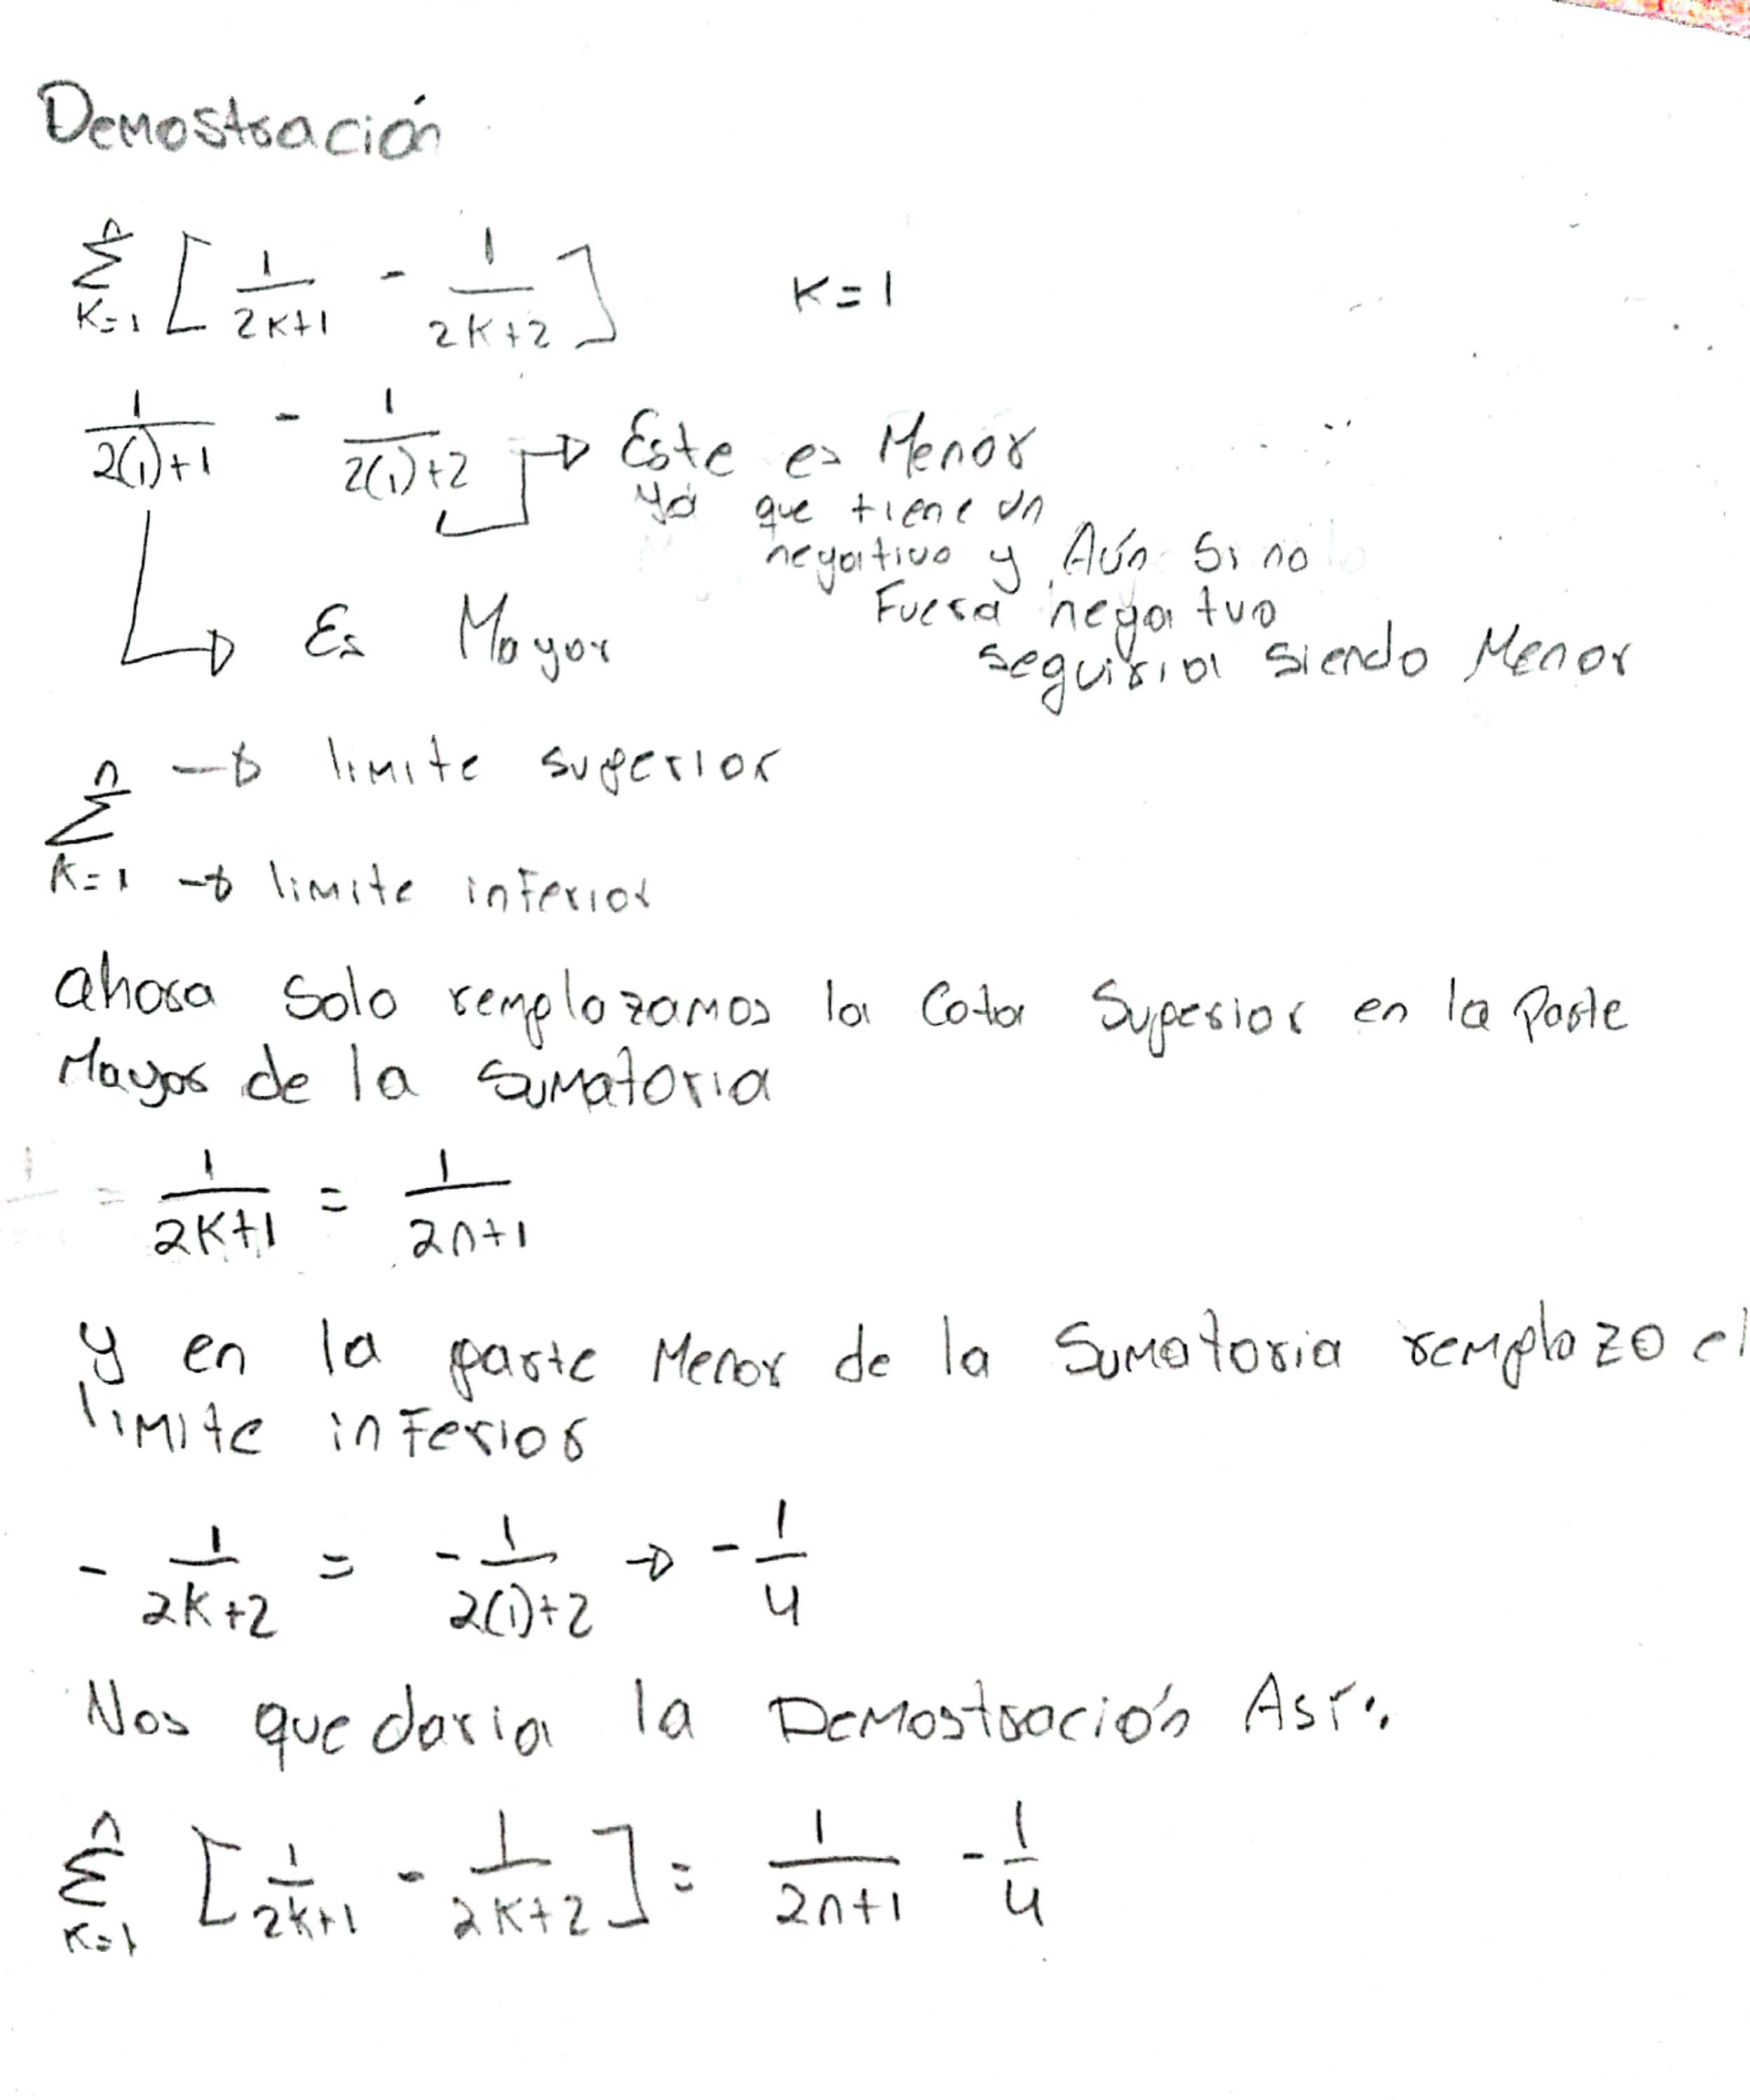 Demostración
n
Σ [ 1/(2K+1) - 1/(2K+2) ] K=1
K=1
1/(2(1)+1) - 1/(2(1)+2) → Este es Menor
ya que tiene un
negativo y Aún si no
Fuera negatvo
seguiria siendo Menor
→ Es Mayor
n → limite superior
Σ
K=1 → limite inferior
ahora solo remplazamos la Cota Superior en la Parte
Mayor de la sumatoria
= 1/(2K+1) = 1/(2n+1)
y en la parte Menor de la Sumatoria remplazo el
limite inferior
- 1/(2K+2) = - 1/(2(1)+2) → - 1/4
Nos quedaria la Demostración Así:
n
Σ [ 1/(2K+1) - 1/(2K+2) ] = 1/(2n+1) - 1/4
K=1